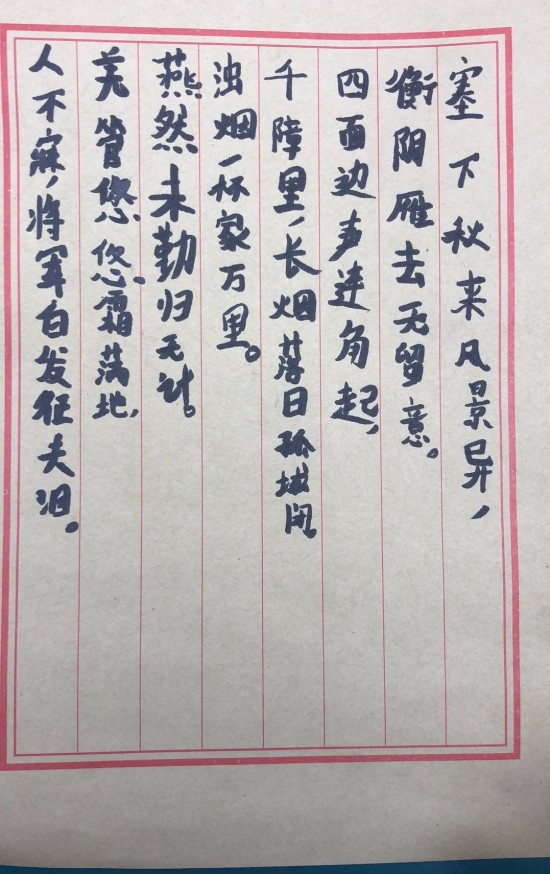 塞下秋来风景异，
衡阴雁去无留意。
四面边声连角起，
千障里，长烟落日孤城闭。
浊烟一杯家万里。
燕然未勤归无计。
羌管悠悠霜落地，
人不寐，将军白发征夫泪。